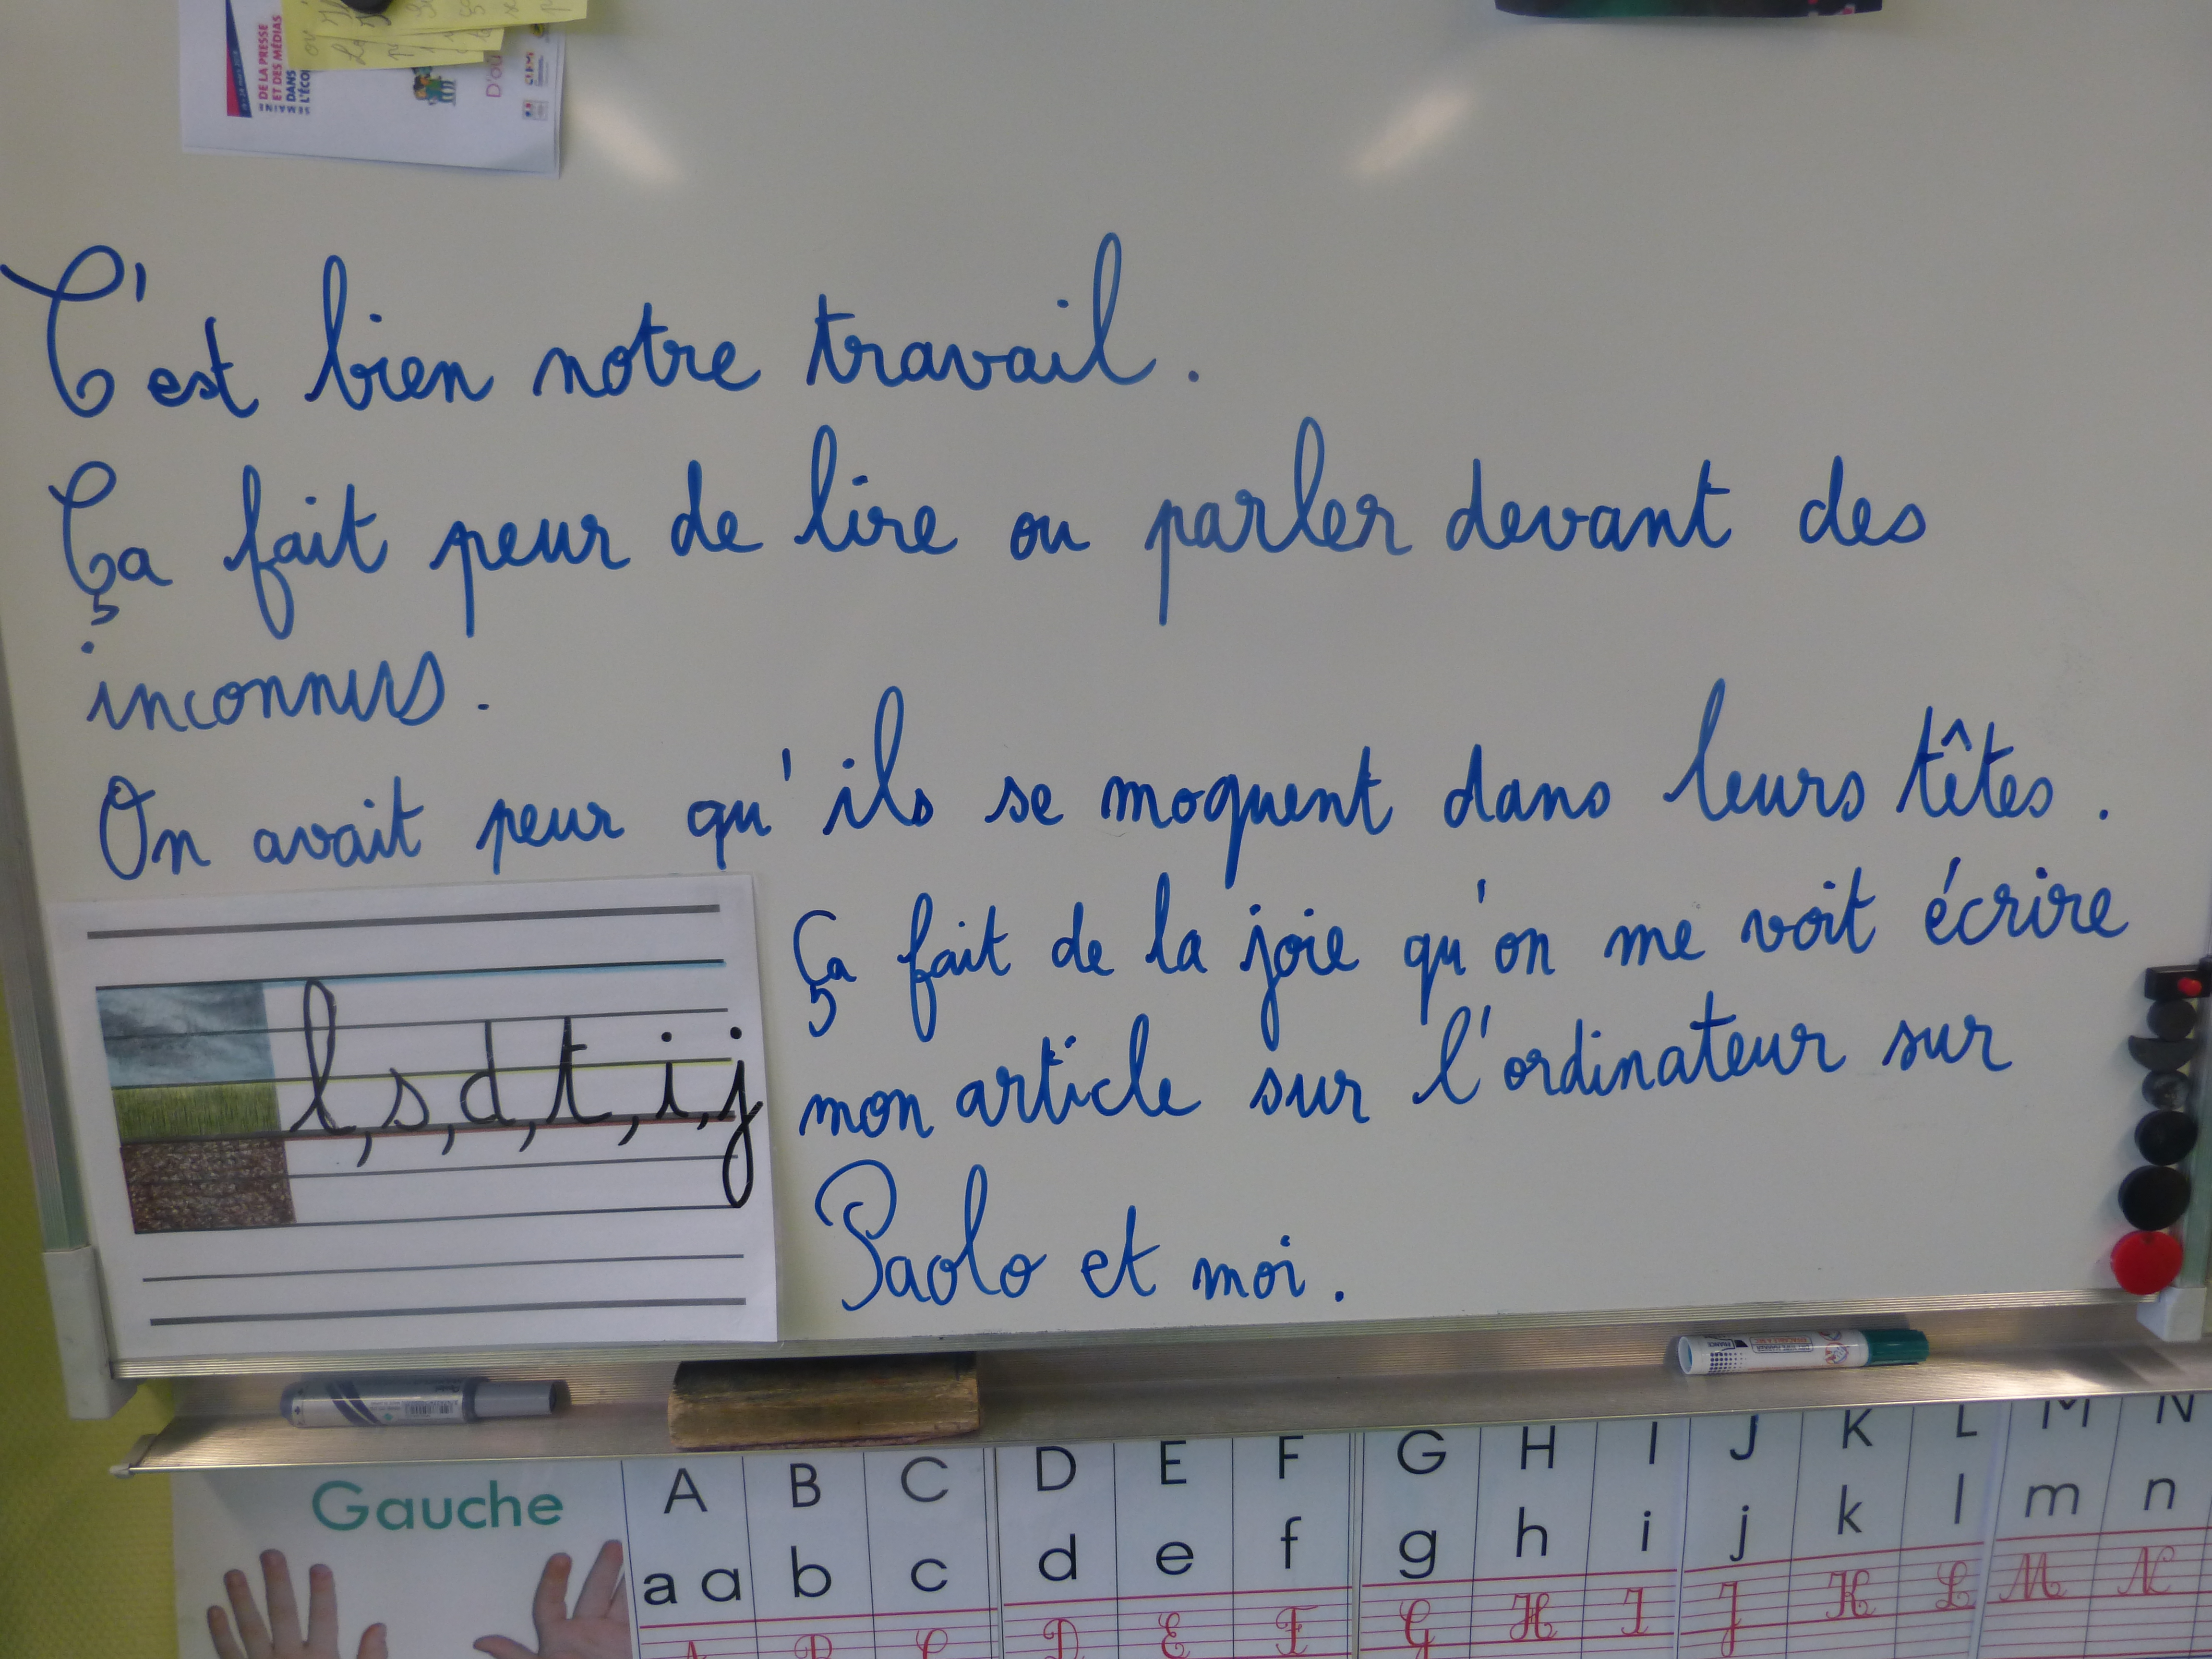 DE LA PRESSE
ET DES MÉDIAS
DANS
L'ÉCO
D'où
C'est bien notre travail.
Ça fait peur de lire ou parler devant des
inconnus.
On avait peur qu'ils se moquent dans leurs têtes.
Ça fait de la joie qu'on me voit écrire
mon article sur l'ordinateur sur
Paolo et moi.
l, s, d, t, i, j
Gauche
A B C D E F G H I J K L M N
a a b c d e f g h i j k l m n
D E F G H I J K L M N